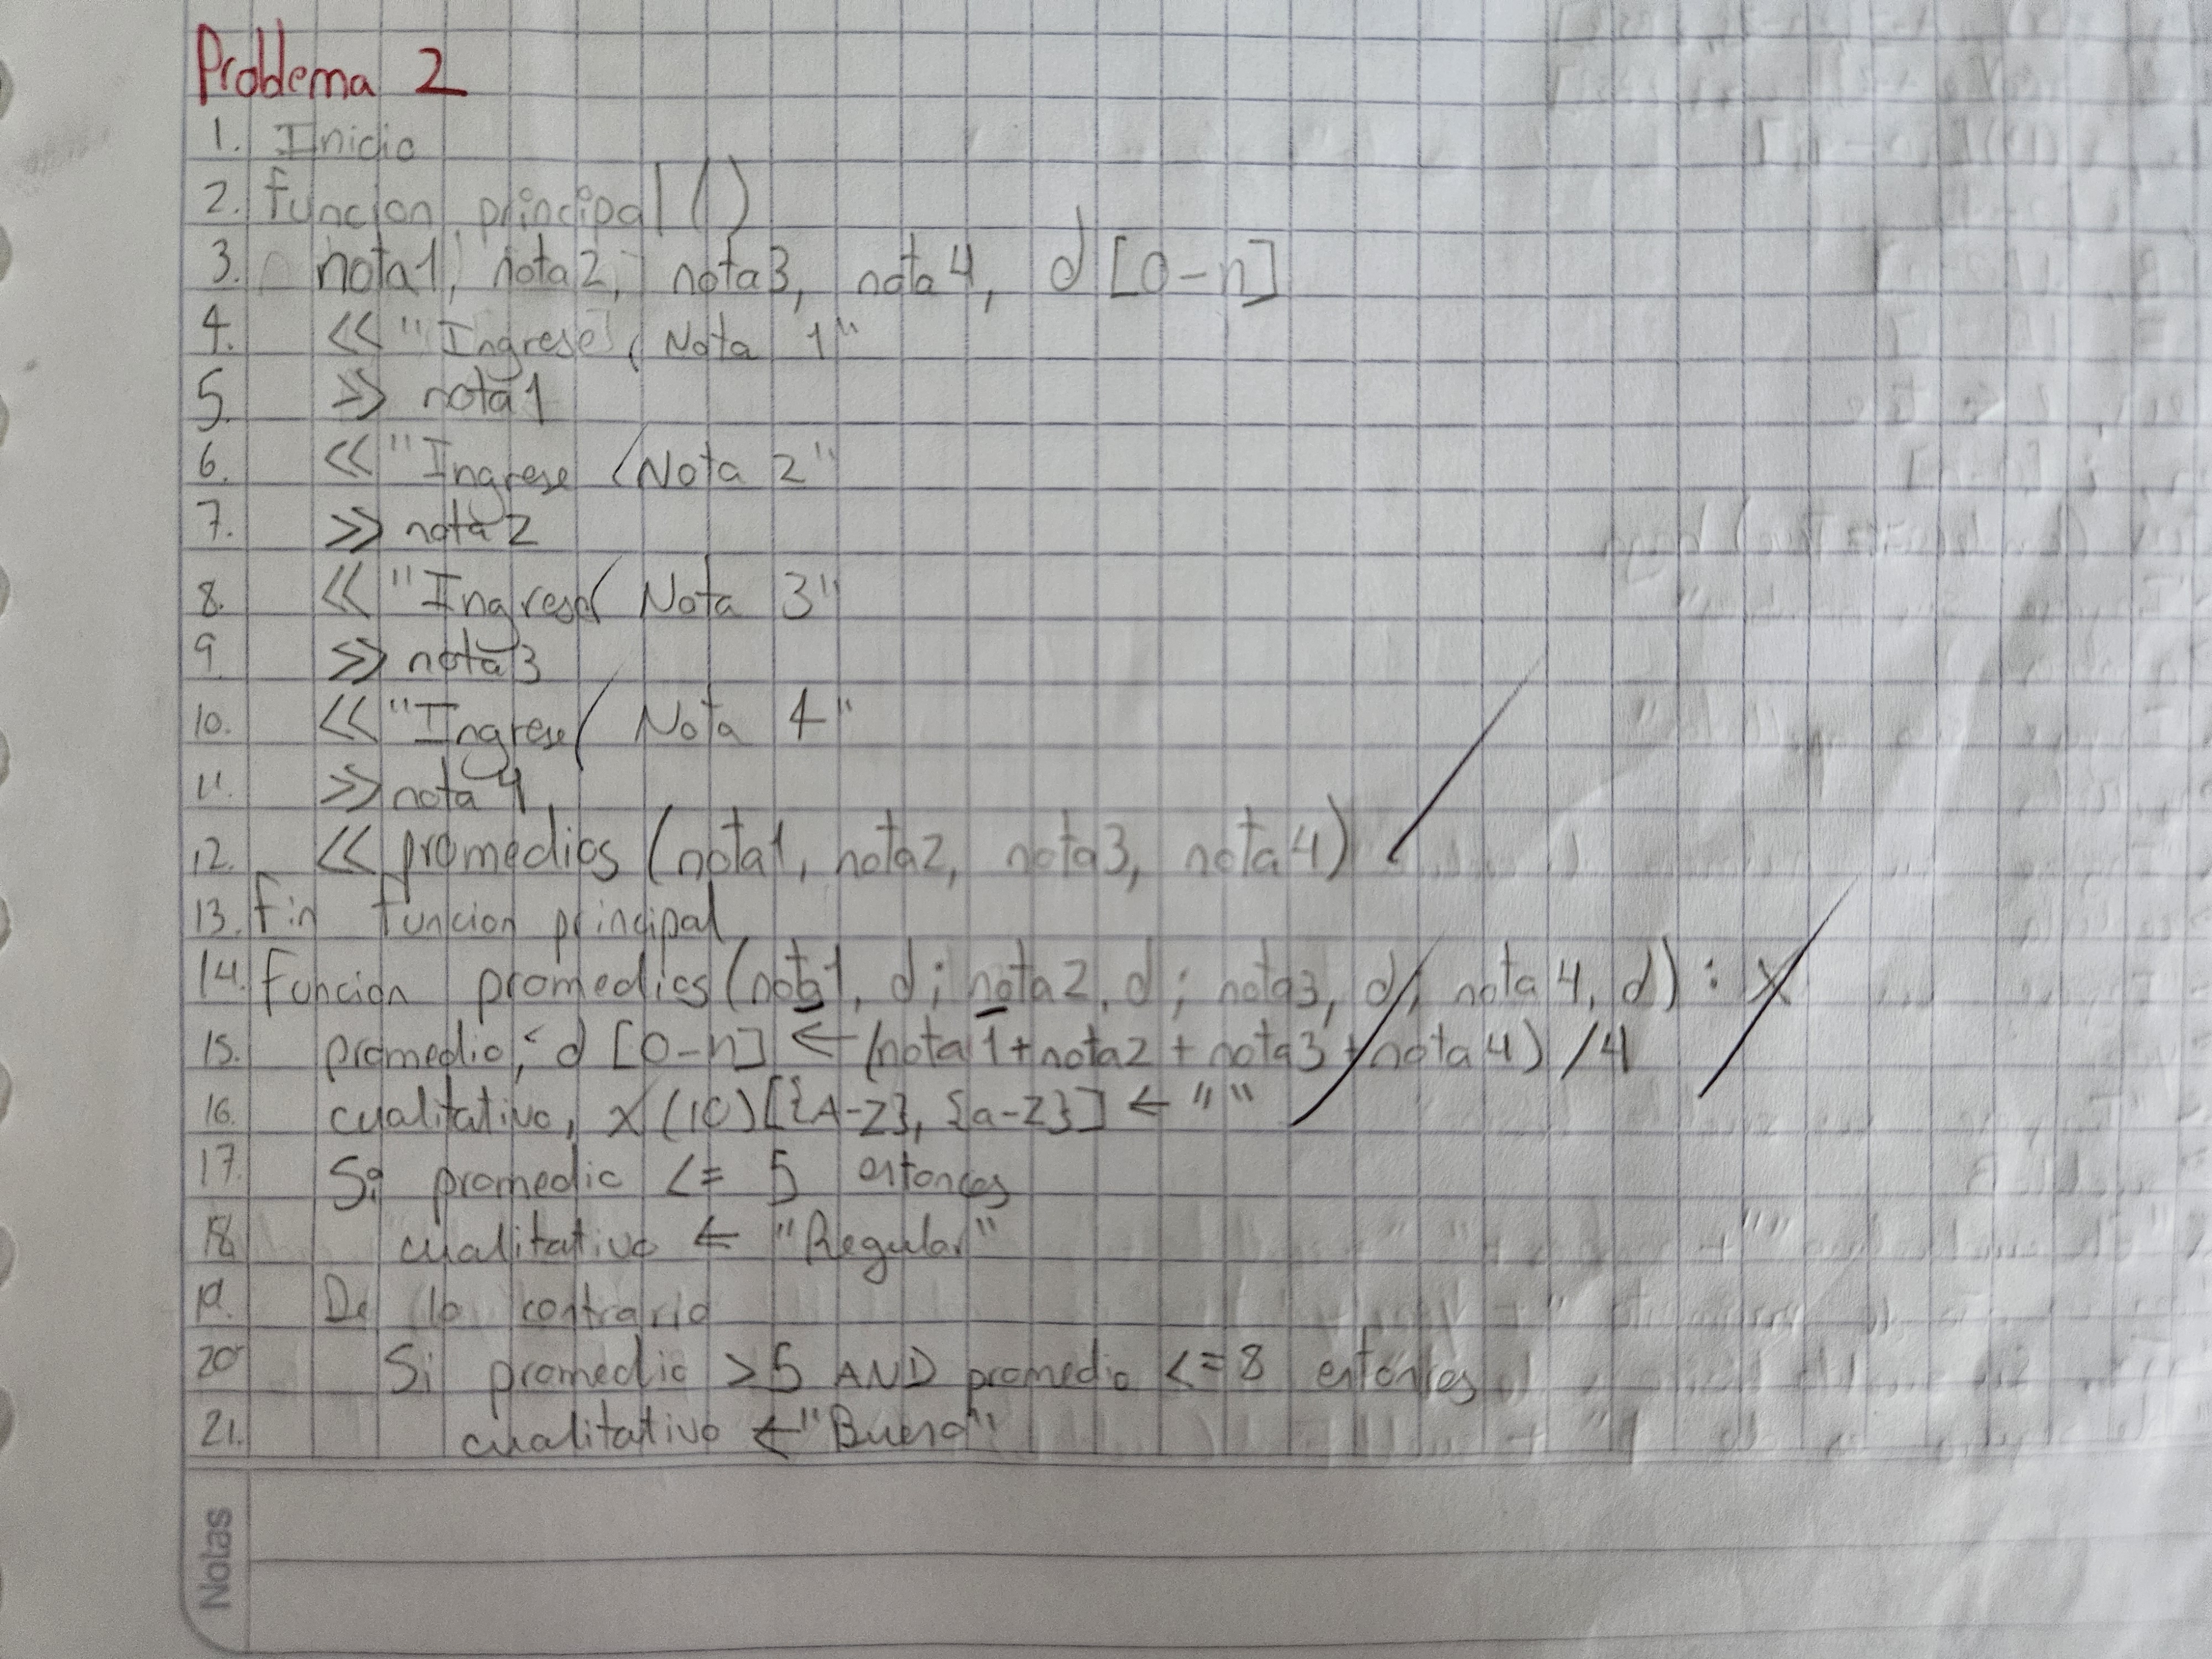 Problema 2
1. Inicio
2. funcion principal ()
3. nota1, nota2, nota3, nota4, d [0-n]
4. << "Ingrese Nota 1"
5. >> nota1
6. << "Ingrese Nota 2"
7. >> nota2
8. << "Ingrese Nota 3"
9. >> nota3
10. << "Ingrese Nota 4"
11. >> nota4
12. << promedios (nota1, nota2, nota3, nota4)
13. Fin funcion principal
14. Funcion promedios (nota1, d; nota2, d; nota3, d; nota4, d) : X
15. promedio, d [0-n] ← (nota1+nota2+nota3+nota4) /4
16. cualitativo, X (10) [{A-Z}, {a-z}] ← ""
17. Si promedio <= 5 entonces
18. cualitativo ← "Regular"
19. De lo contrario
20 Si promedio >5 AND promedio <=8 entonces
21. cualitativo ← "Bueno"
Notas